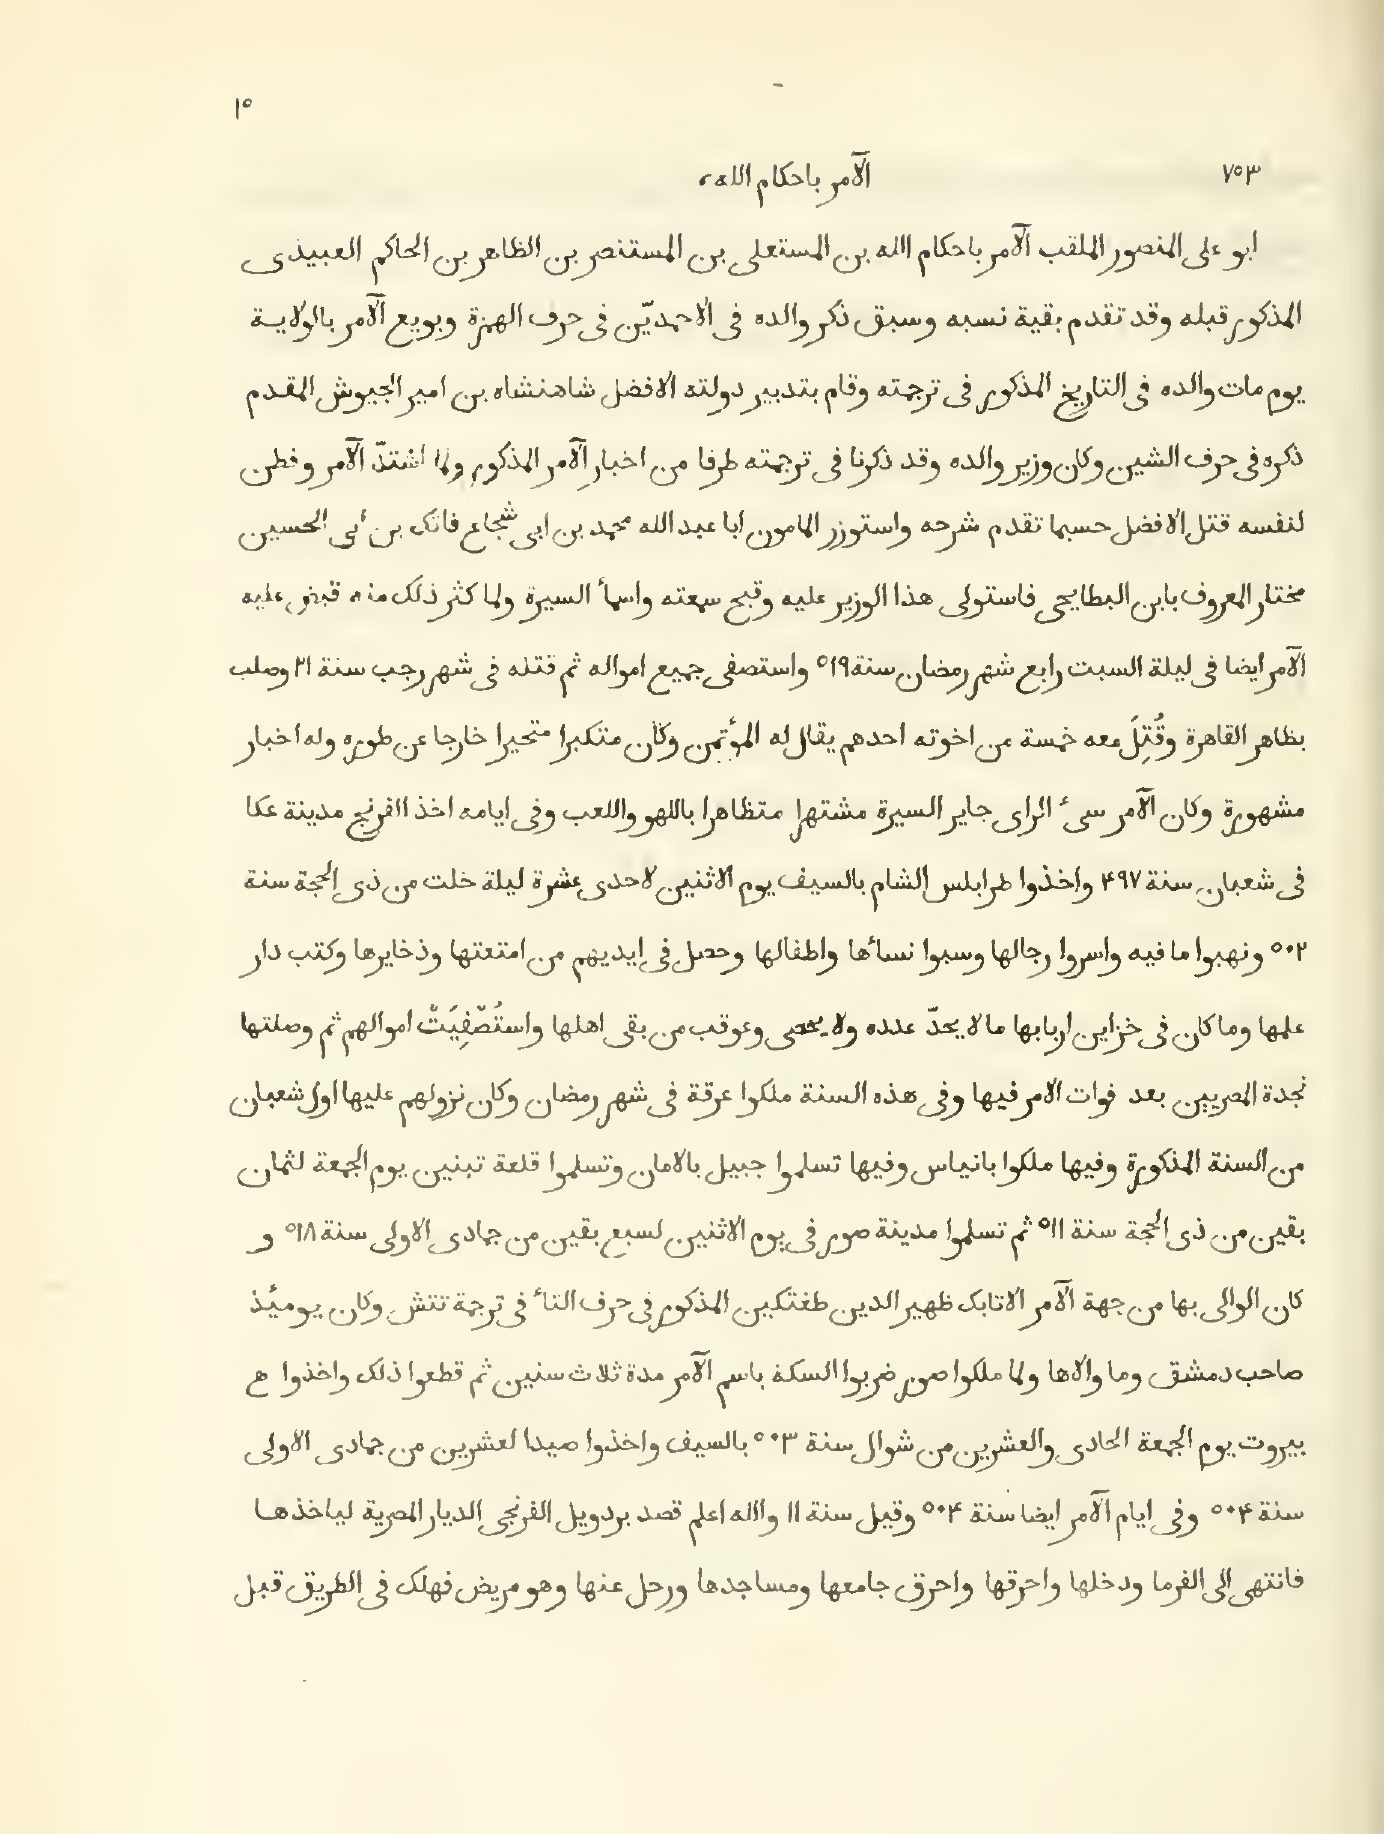 ١٥
٧٥٣
الآمر باحكام الله،
ابو على المنصور الملقب الآمر باحكام الله بن المستعلى بن المستنصر بن الظاهر بن الحاكم العبيدى
المذكور قبله وقد تقدم بقية نسبه وسبق ذكر والده فى الاحمديّن فى حرف الهمزة وبويع الآمر بالولاية
يوم مات والده فى التاريخ المذكور فى ترجمته وقام بتدبير دولته الافضل شاهنشاه بن امير الجيوش المقدم
ذكره فى حرف الشين وكان وزير والده وقد ذكرنا فى ترجمته طرفا من اخبار الآمر المذكور ولما اشتدّ الآمر وفطن
لنفسه قتل الافضل حسبما تقدم شرحه واستوزر المامون ابا عبد الله محمد بن ابى شجاع فاتك بن أبى الحسين
مختار المعروف بابن البطايحى فاستولى هذا الوزير عليه وقبح سمعته واسأ السيرة ولما كثر ذلك منه قبض عليه
الآمر ايضا فى ليلة السبت رابع شهر رمضان سنة ٥١٩ واستصفى جميع امواله ثم قتله فى شهر رجب سنة ٢١ وصلب
بظاهر القاهرة وقُتِلَ معه خمسة من اخوته احدهم يقال له المؤتمن وكان متكبرا متجبرا خارجا عن طوره وله اخبار
مشهورة وكان الآمر سىء الراى جاير السيرة مشتهرا متظاهرا باللهو واللعب وفى ايامه اخذ الفرنج مدينة عكا
فى شعبان سنة ۴٩٧ واخذوا طرابلس الشام بالسيف يوم الاثنين لاحدى عشرة ليلة خلت من ذى الحجة سنة
٥٠٢ ونهبوا ما فيه واسروا رجالها وسبوا نسأها واطفالها وحصل فى ايديهم من امتعتها وذخايرها وكتب دار
علمها وما كان فى خزاين اربابها ما لا يحدّ عدده ولا يحصى وعوقب من بقى اهلها واستُصْفِيَتْ اموالهم ثم وصلتها
نجدة المصريين بعد فوات الامر فيها وفى هذه السنة ملكوا عرقة فى شهر رمضان وكان نزولهم عليها اول شعبان
من السنة المذكورة وفيها ملكوا بانياس وفيها تسلموا جبيل بالامان وتسلموا قلعة تبنين يوم الجمعة لثمان
بقين من ذى الحجة سنة ٥١١ ثم تسلموا مدينة صور فى يوم الاثنين لسبع بقين من جمادى الاولى سنة ٥١٨ و
كان الوالى بها من جهة الآمر الاتابك ظهير الدين طغتكين المذكور فى حرف التأ فى ترجمة تتش وكان يومئذ
صاحب دمشق وما والاها ولما ملكوا صور ضربوا السكة باسم الآمر مدة ثلاث سنين ثم قطعوا ذلك واخذوا
بيروت يوم الجمعة الحادى والعشرين من شوال سنة ٥٠٣ بالسيف واخذوا صيدا لعشرين من جمادى الاولى
سنة ٥٠۴ وفى ايام الآمر ايضا سنة ٥٠۴ وقيل سنة ١١ والله اعلم قصد بردويل الفرنجى الديار المصرية لياخذها
فانتهى الى الفرما ودخلها واحرقها واحرق جامعها ومساجدها ورحل عنها وهو مريض فهلك فى الطريق قبل